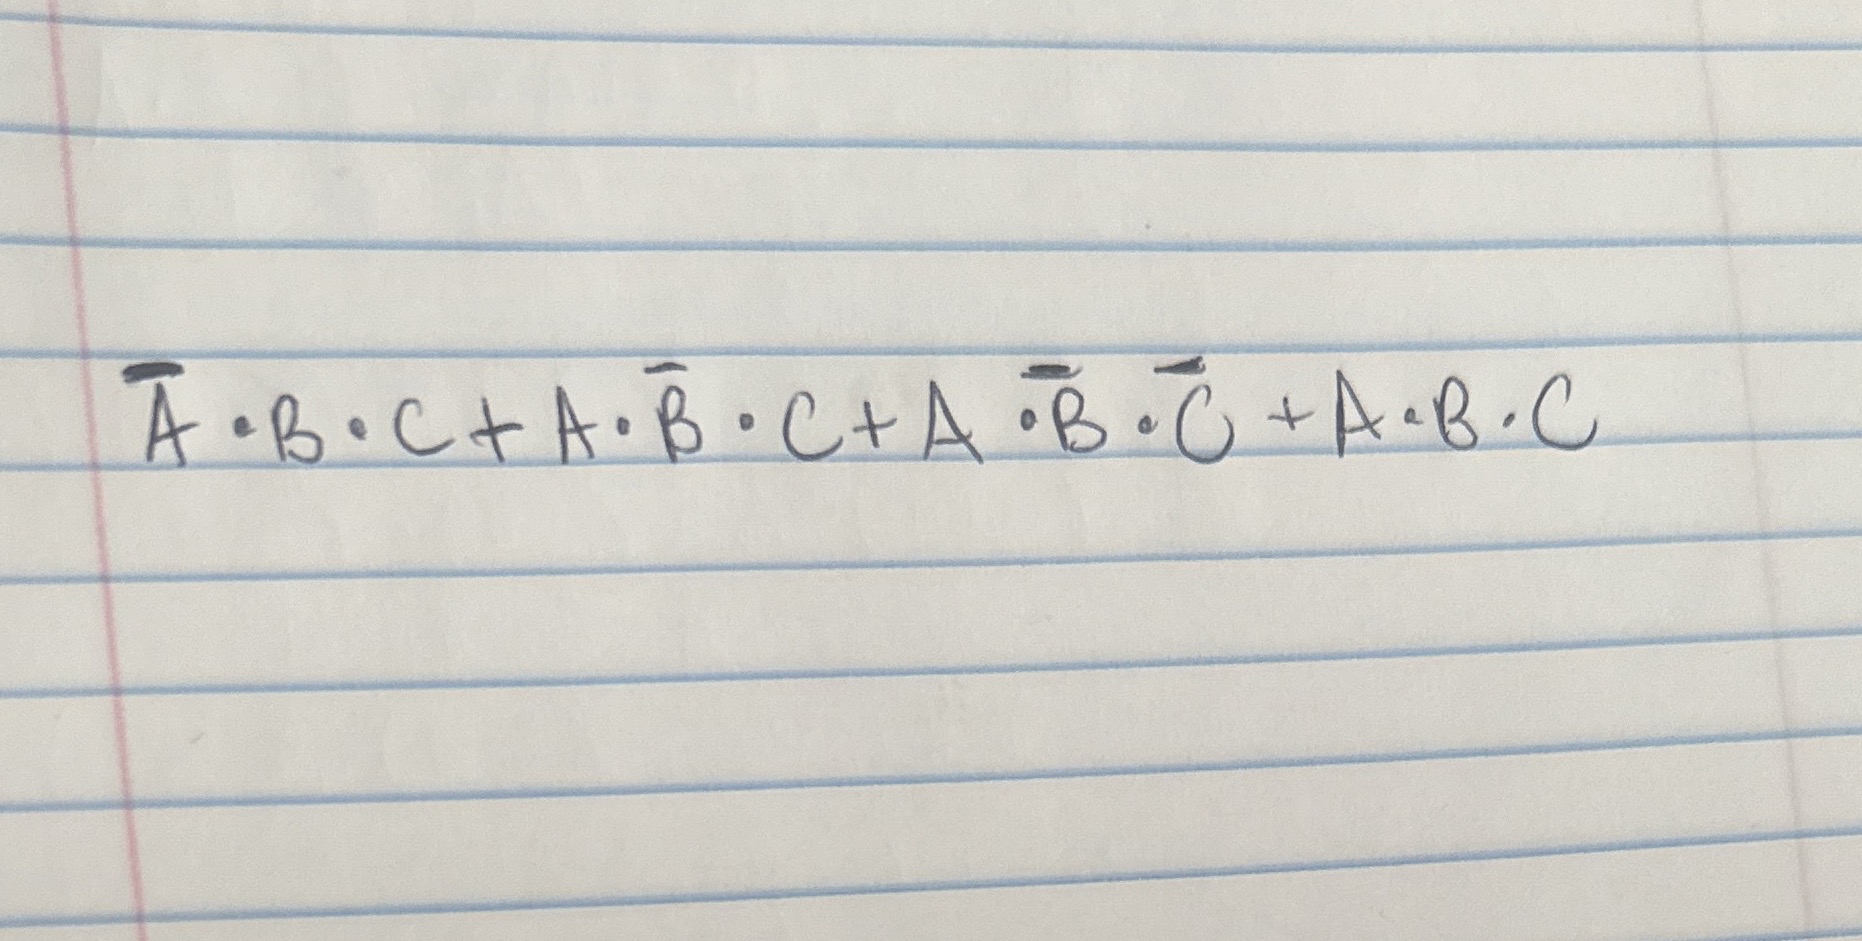 A̅ · B · C + A · B̅ · C + A · B̅ · C̅ + A · B · C